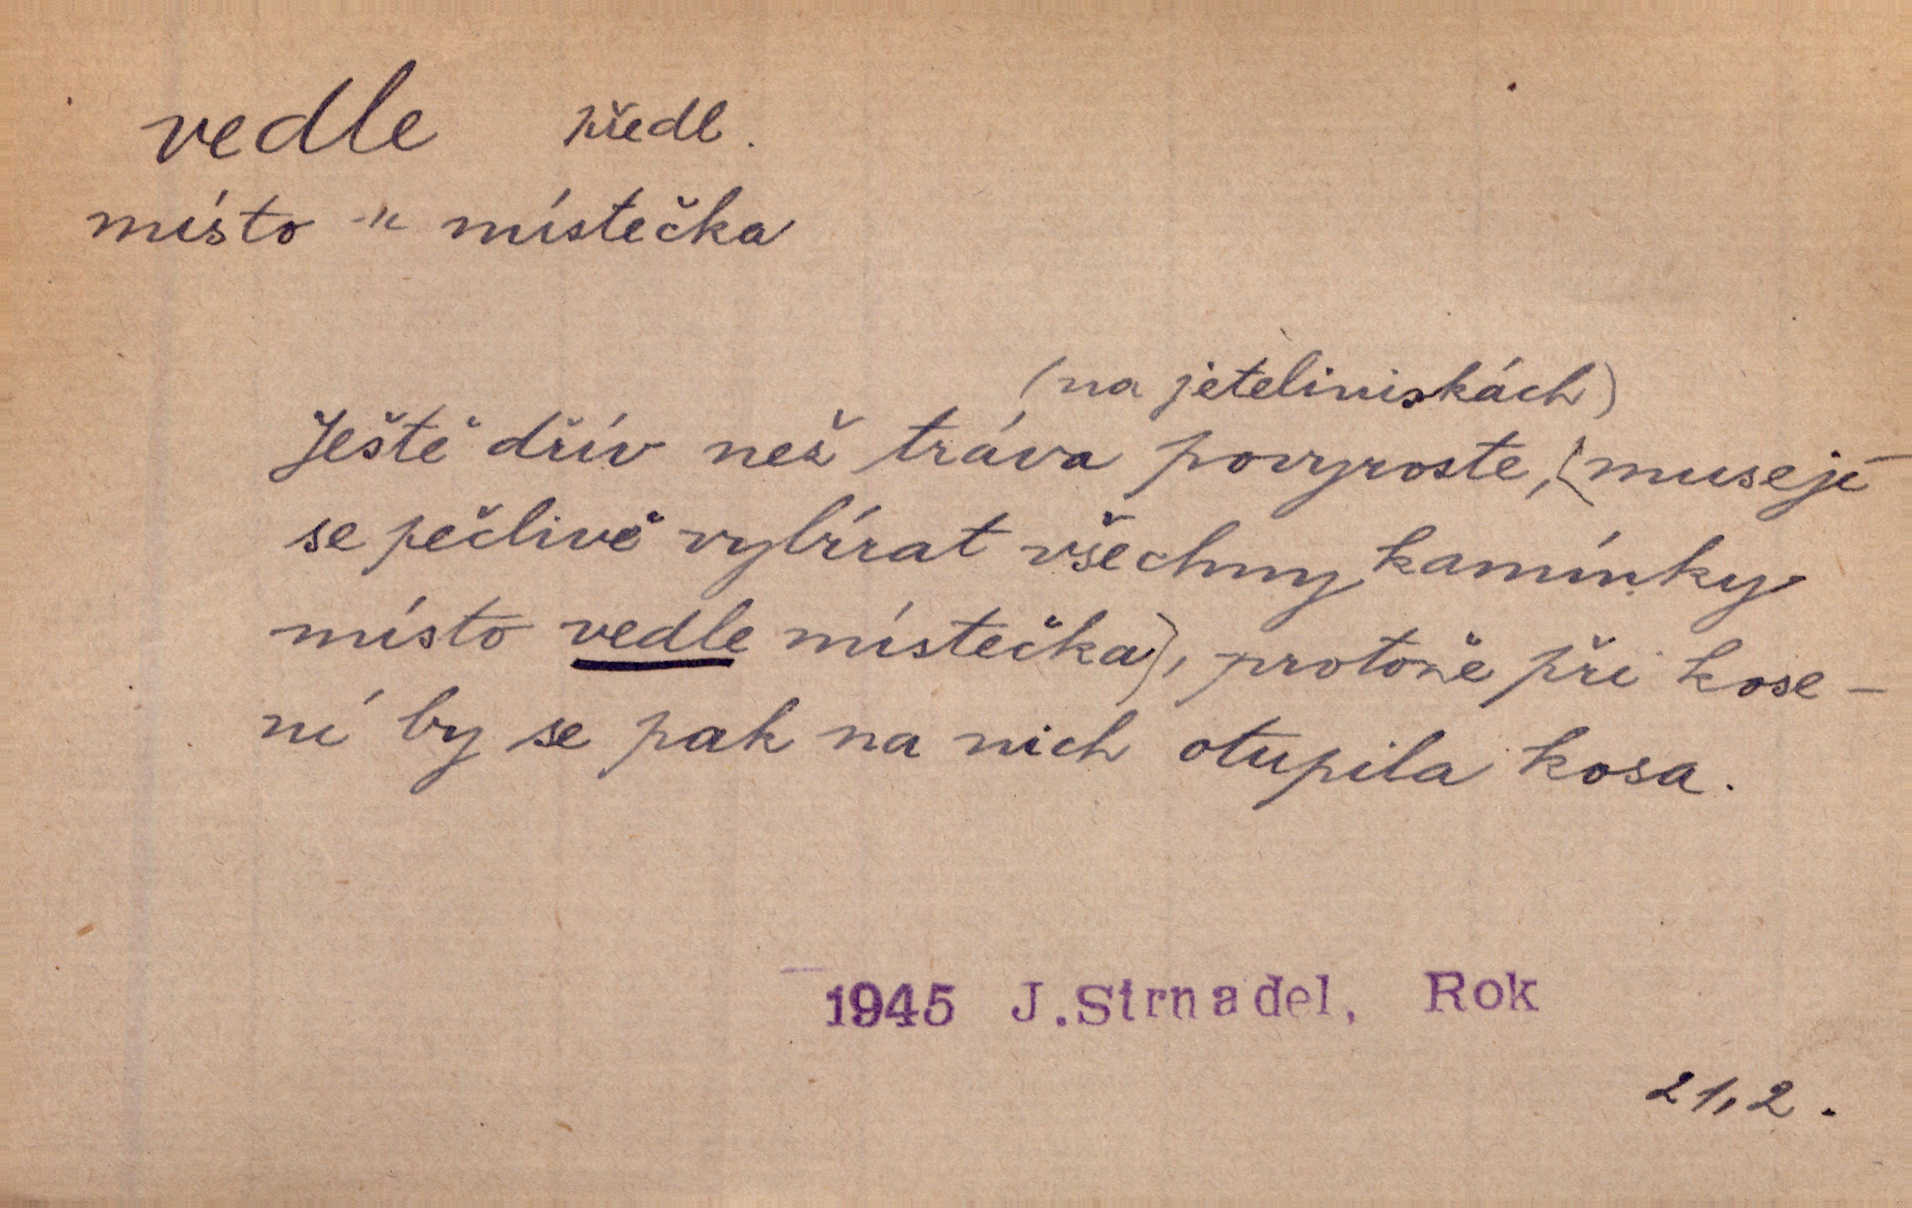 vedle předl.
místo -"- místečka
(na jeteliniskách)
Ještě dřív než tráva povyroste, (musejí
se pečlivě vybírat všechny kamínky
místo vedle místečka), protože při kose-
ní by se pak na nich otupila kosa.
1945 J.Strnadel, Rok
21,2.